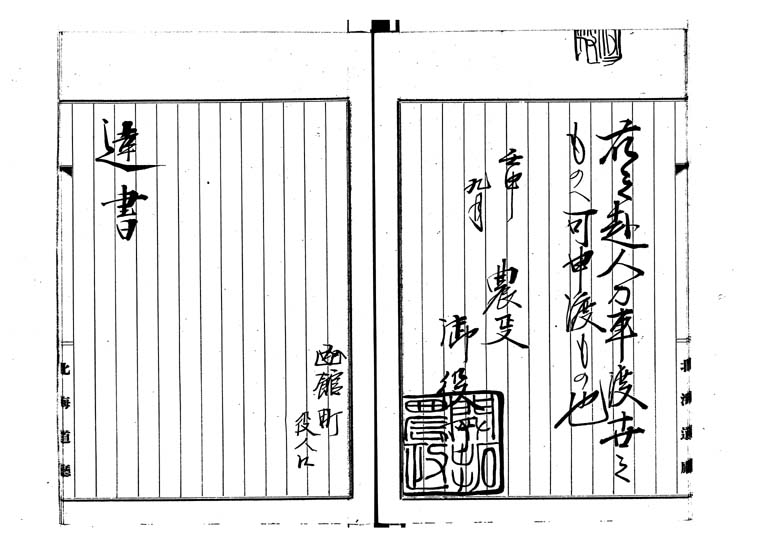 右之趣人力車渡世之
ものへ可申渡もの也
壬申
九月
農政
御役
達書
函館町
役人
北海道廳
北海道廳